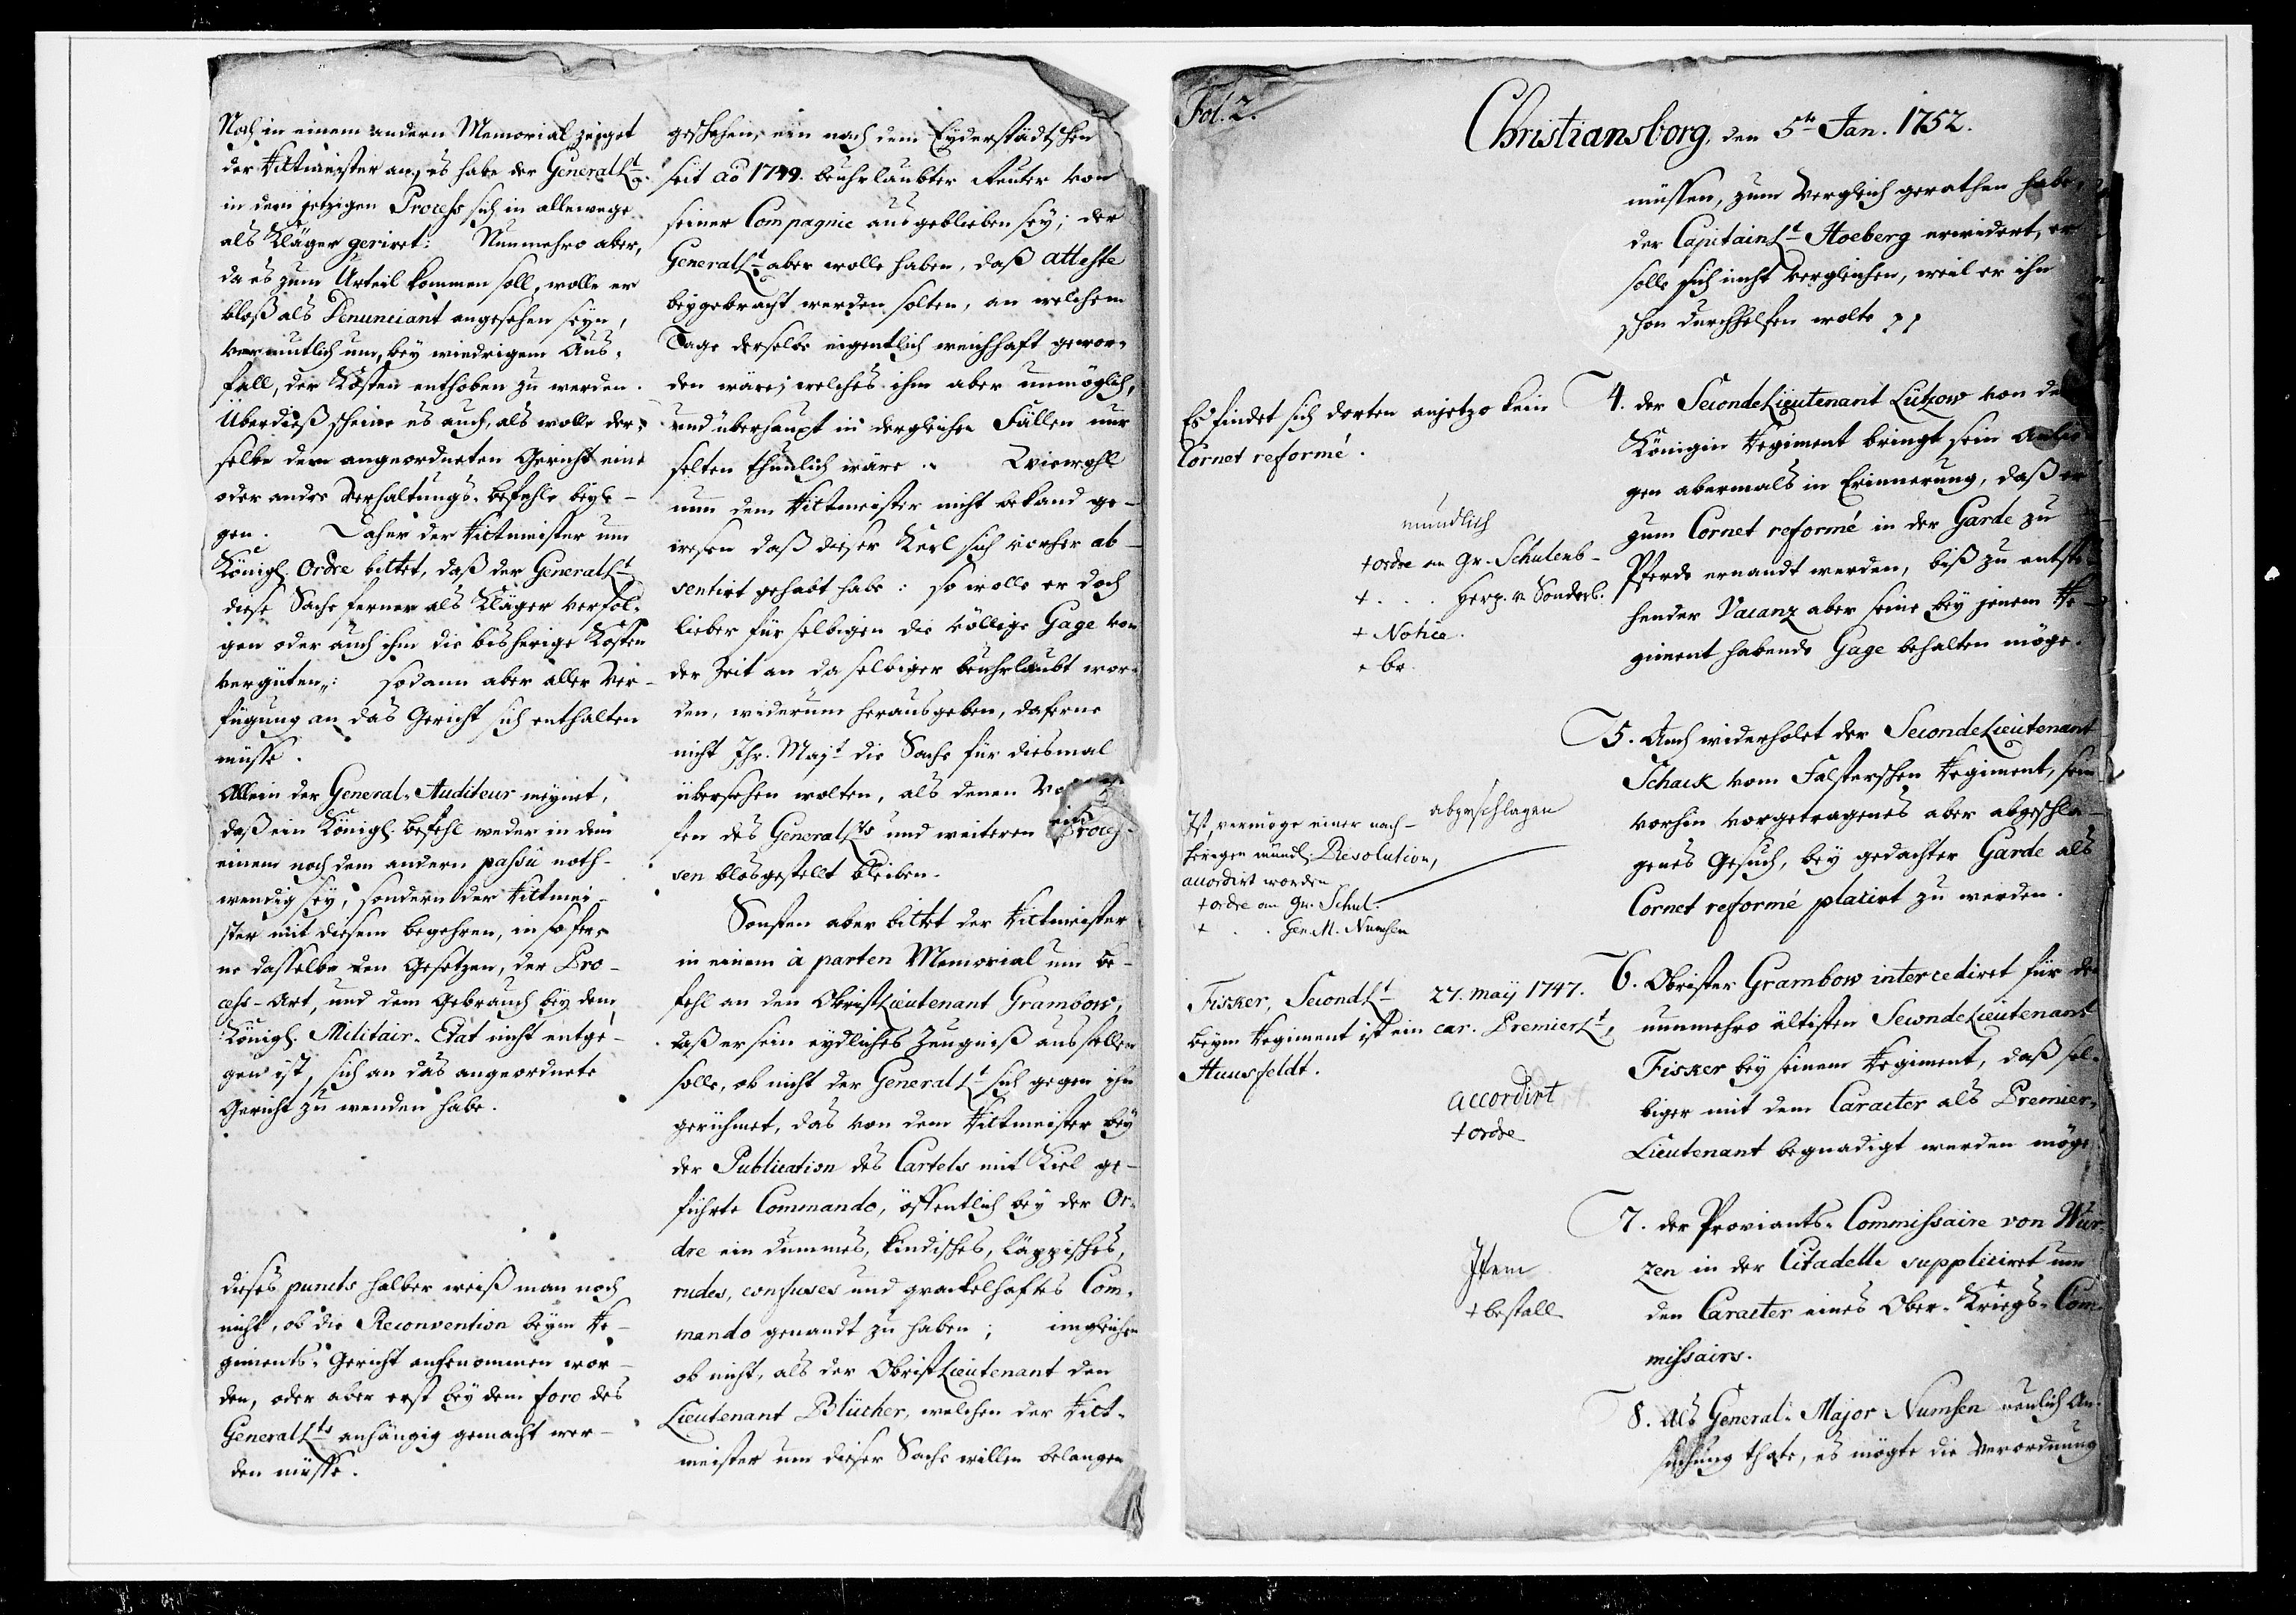 Noch in einem andern Memorial zeiget
der Rittmeister an, es habe der GeneralLt
in dem jetzigen Process sich in allewege
als Kläger geriret: Nunmehro aber,
da es zum Urteil kommen soll, wolle er
bloß als Denunciant angesehen seyn,
vermutlich um, bey wiedrigem Aus-
fall, der Kosten enthoben zu werden.
Überdieß scheine es auch, als wolle der-
selbe dem angeordneten Gericht eine
oder andre Verhaltungs-befehle beyle-
gen. Daher der Rittmeister um
Königl. Ordre bittet, daß der GeneralLt
diese Sache ferner als Kläger verfol-
gen oder auch ihm die bisherige Kosten
vergüten: sodann aber aller Ver-
fügung an das Gericht sich enthalten
müsse.
Allein der General-Auditeur meynet,
daß ein Königl. befehl weder in dem
einem noch dem andern passu noth-
wendig sey, sondern der Rittmei-
ster mit diesem begehren, in sofer-
ne dasselbe den Gesetzen, der Pro-
cess-Art, und dem Gebrauch bey dem
Königl. Militair-Etat nicht entge-
gen ist, sich an das angeordnete
Gericht zu wenden habe.
dieses puncts halber weiß man noch
nicht, ob die Reconvention beym Re-
giments-Gericht angenommen wor-
den, oder aber erst bey dem foro des
GeneralLts anhängig gemacht wer-
den müsse.
geschehen, ein nach dem Eyderstädtschen
seit ao 1749. beuhrlaubter Reuter von
seiner Compagnie ausgeblieben sey; der
GeneralLt aber wolle haben, daß atteste
beygebracht werden solten, an welchem
Tage derselbe eigentlich weichhaft gewor-
den wäre; welches ihm aber unmöglich,
und überhaupt in dergleichen Fällen nur
selten thunlich wäre. Wiewohl
nun dem Rittmeister nicht bekand ge-
wesen daß dieser Kerl sich vorher ab-
sentirt gehabt habe: so wolle er doch
lieber für selbigen die völlige Gage von
der Zeit an da selbiger beuhrlaubt wor-
den, widerum herausgeben, daferne
nicht Ihr. Majt die Sache für diesmal
übersehen wolten, als denen
ten des GeneralLts und weiteren Proces-
sen blosgestellt bleiben.
Sonsten aber bittet der Rittmeister
in einem à parten Memorial um be-
fehl an den ObristLieutenant Grambow,
daß er sein eydliches Zeugniß ausstellen
solle, ob nicht der GeneralLt sich gegen ihn
gerühmet, das von dem Rittmeister bey
der Publication des Cartels mit Kiel ge-
führte Commando, öffentlich bey der Or-
dre ein dummes, kindisches, läppisches,
rudes, confuses und gackelhaftes Com-
mando genandt zu haben; imgleichen
ob nicht, als der ObristLieutenant den
Lieutenant Blücher, welchen der Ritt-
meister um dieser Sache willen belangen
Fol. 2.
Christiansborg, den 5ten Jan. 1752.
müssen, zum Vergleich gerathen habe,
der CapitainLt Hoeberg erwidert, er
solle sich nicht vergleichen, weil er ihn
schon durchhelfen wolte
Es findet sich dorten anjetzo kein
Cornet reformé.
mündlich
+ ordre an Gr. Schulenb-
+ . . . Herz. v. Sonderb.
+ Notice.
+ br.
4. der SecondeLieutenant Lützow von der
Königin Regiment bringt sein anlie-
gen abermals in Erinnerung, daß er
zum Cornet reformé in der Garde zu
Pferde ernandt werden, biß zu entste-
hender Vacanz aber seine bey jenem Re-
giment habende Gage behalten möge.
abgeschlagen
Ist, vermöge einer nach-
herigen mündl. Resolution,
accordirt worden
+ ordre an Gr. Schul.
+ . . Gen.M. Numsen
5. Auch widerholet der SecondeLieutenant
Schack vom Falsterschen Regiment, sein
vorhin vorgetragenes aber abgeschla-
genes Gesuch, bey gedachter Garde als
Cornet reformé placirt zu werden.
Fisker, SecondLt 27. maÿ 1747.
beym Regiment ist ein car. PremierLt,
Huusfeldt.
accordirt
+ ordre
6. Obrister Grambow intercediret für den
nunmehro ältisten SecondeLieutenant
Fisker bey seinem Regiment, daß sel-
biger mit dem Caracter als Premier-
Lieutenant begnadigt werden möge.
Item
+ bestall
7. der Proviants-Commissaire von Wür-
zen in der Citadelle suppliciret um
den Caracter eines Ober-Kriegs-Com-
missairs.
8. Als General-Major Numsen neulich An-
suchung thate, es mögte die Verordnung